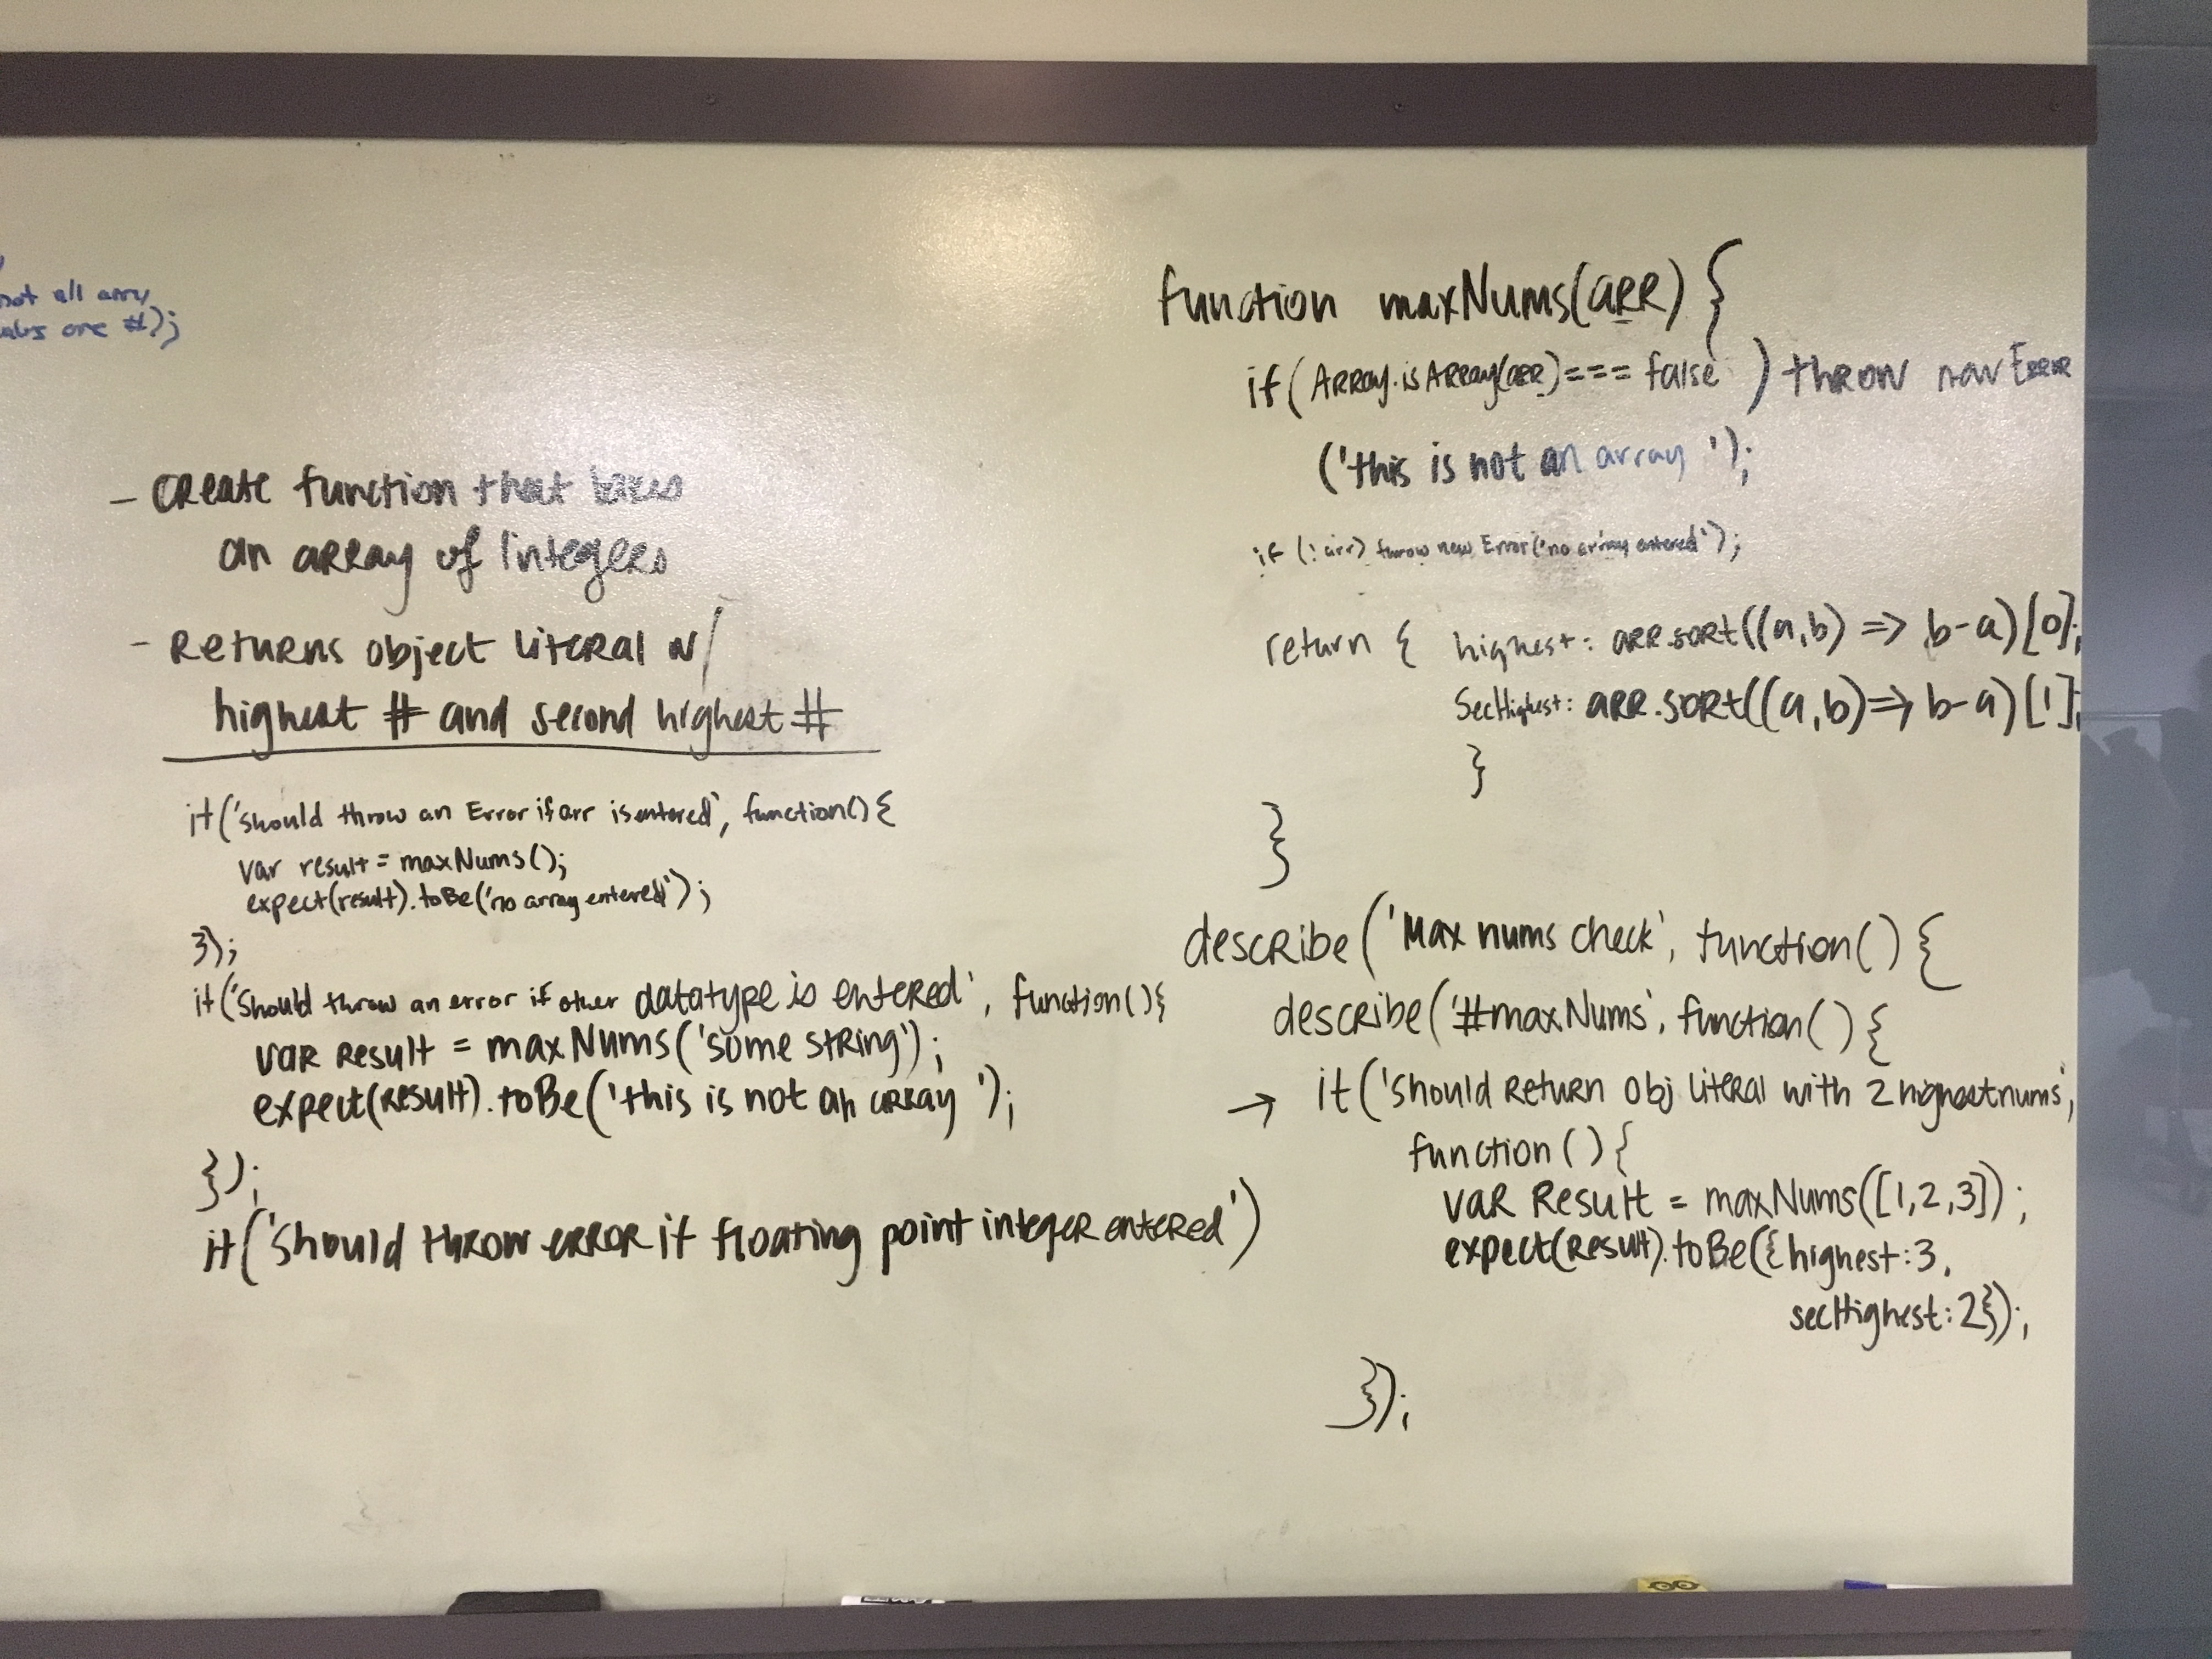 not all array
one #);
- Create function that takes
an array of integers
- Returns object literal w/
highest # and second highest #
it('should throw an Error if arr is entered', function() {
var result = maxNums();
expect(result).toBe('no array entered');
});
it('should throw an error if other datatype is entered', function(){
var result = maxNums('some string');
expect(result).toBe('this is not an array ');
});
it('should throw error if floating point integer entered')
function maxNums(arr) {
if(Array.isArray(arr)=== false ) throw new Error
('this is not an array ');
if (!arr) throw new Error('no array entered');
return { highest: arr.sort((a,b) => b-a)[0];
SecHighest: arr.sort((a,b)=> b-a)[1];
}
}
describe('Max nums check', function() {
describe('#maxNums', function() {
→ it('should return obj literal with 2 highest nums',
function() {
var result = maxNums([1,2,3]);
expect(result).toBe({highest:3,
secHighest:2});
});